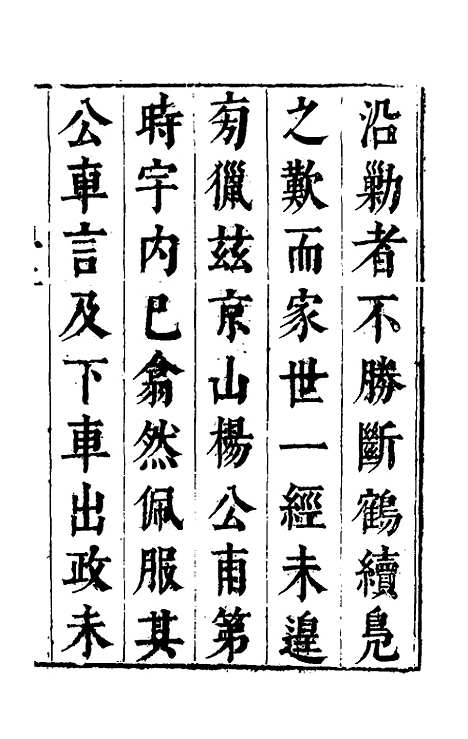 沿勦者不勝斷鶴續鳬
之歎而家世一經未遑
旁獵茲京山楊公甫第
時宇内已翕然佩服其
公車言及下車出政未